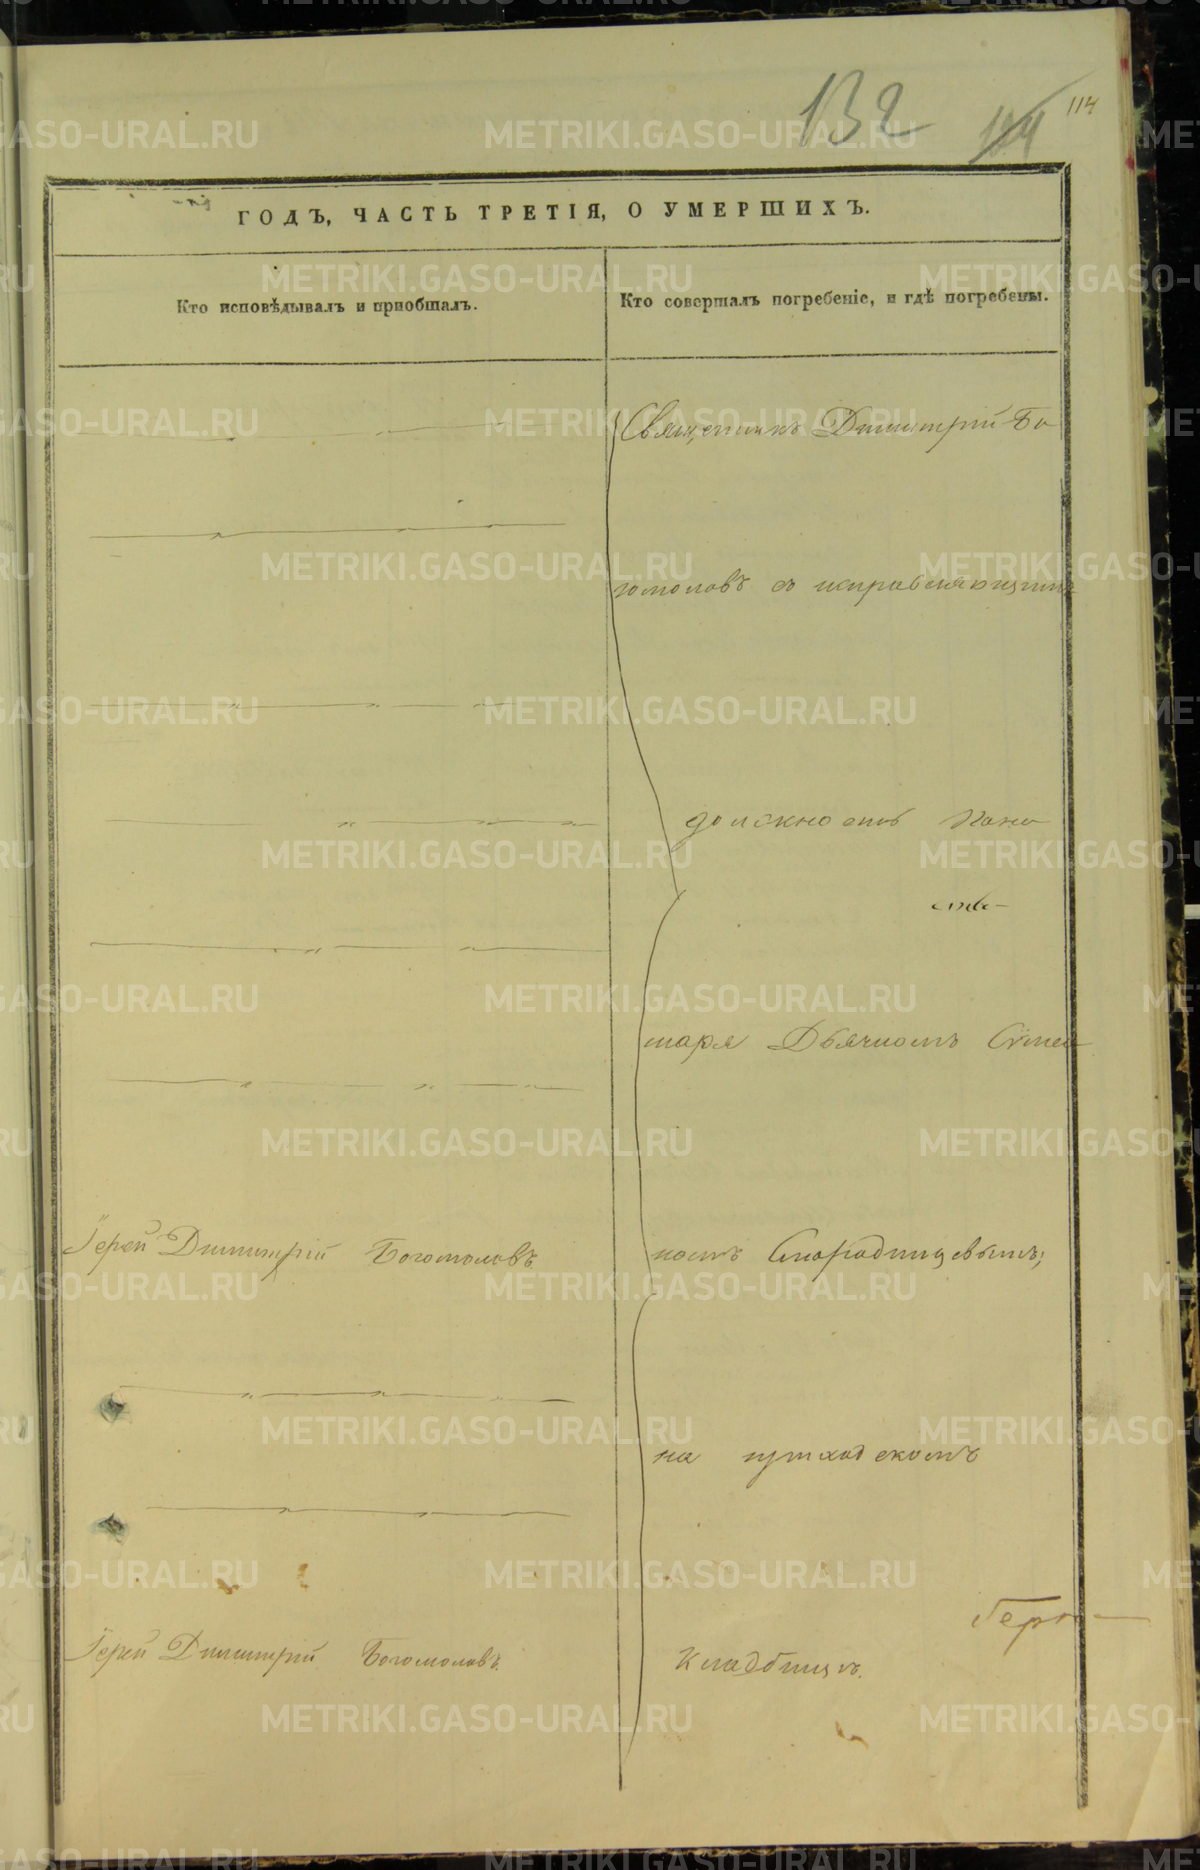 132 114 114
ГОДЪ, ЧАСТЬ ТРЕТІЯ, О УМЕРШИХЪ.
Кто исповѣдывалъ и пріобщалъ.
Кто совершалъ погребеніе, и гдѣ погребены.
Священникъ Димитрій Бо
гомоловъ съ исправляющимъ
должность Поно
маря Дьячкомъ Сѵмео
Іерей Димитрій Богомоловъ
номъ
на приходскомъ
Іерей Димитрій Богомоловъ.
кладбищѣ.
METRIKI.GASO-URAL.RU